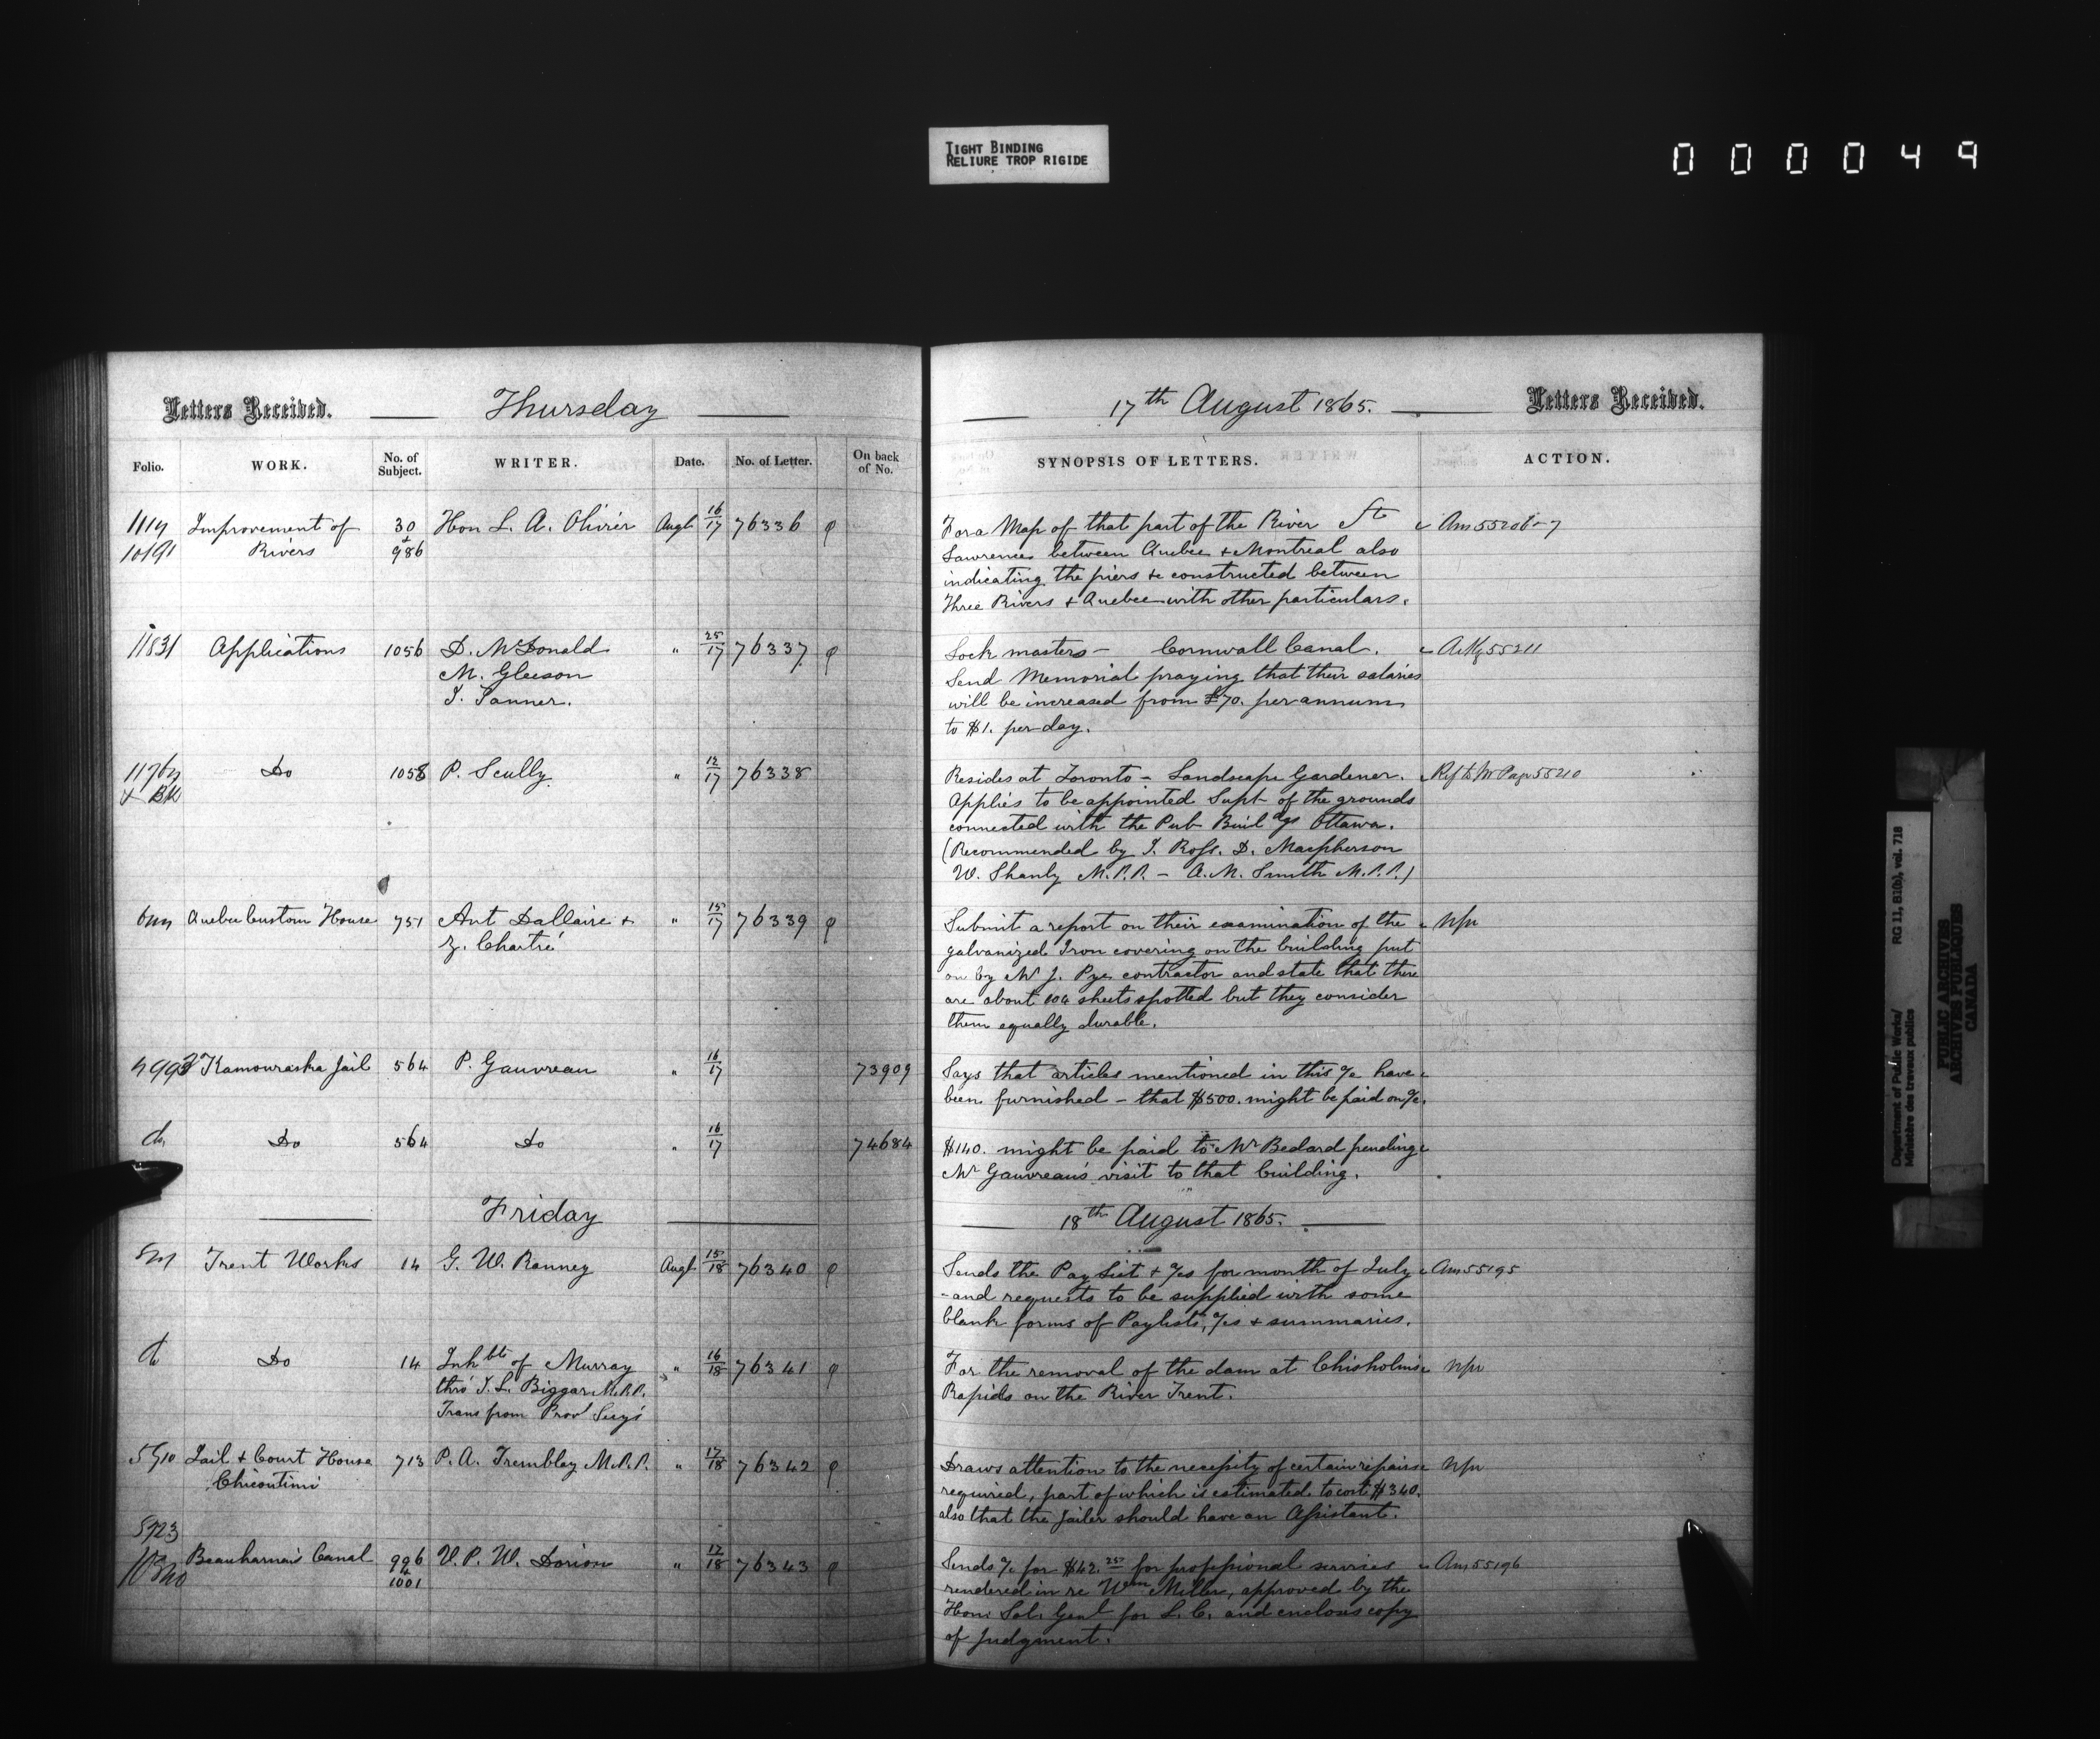 TIGHT BINDING
RELIURE TROP RIGIDE
000049
Letters Received. Thursday
Folio. WORK. No. of Subject. WRITER. Date. No. of Letter. On back of No.
Improvement of 30 Hon L. A. Olivier Augt 16/17 76336
Rivers + 986
11831 Applications 1056 D. McDonald " 25/17 76337
M. Gleeson
T. Tanner.
Do 1058 P. Scully " 12/17 76338
Quebec Custom House 751 Ant Dallaire + " 15/17 76339
Z. Chartré
Kamouraska Jail 564 P. Gauvreau " 16/17 73909
do Do 564 Do " 16/17 74684
Friday
Trent Works 14 G. W. Ranney Augt 15/18 76340
do Do 14 Inhbts of Murray " 16/18 76341
thro' J. L. Biggar M.P.P.
Trans from Provl Secy's
Jail & Court House 713 P. A. Tremblay M.P.P. " 17/18 76342
Chicoutimi
Beauharnois Canal 996 V. P. W. Dorion " 17/18 76343
+ 1001
17th August 1865. Letters Received.
SYNOPSIS OF LETTERS. ACTION.
For a Map of that part of the River St Ans 55206-7
Lawrence between Quebec & Montreal also
indicating the piers &c constructed between
Three Rivers & Quebec with other particulars.
Lock masters – Cornwall Canal. 55211
Send Memorial praying that their salaries
will be increased from £70. per annum
to $1. per day.
Resides at Toronto – Landscape Gardener. Ref to Mr Page 55210
Applies to be appointed Supt of the grounds
connected with the Pub Buildgs Ottawa.
(Recommended by J. Ross. D. Macpherson
W. Shanly M.P.P. – A. M. Smith M.P.P.)
Submit a report on their examination of the
galvanized Iron covering on the building put
on by Mr J. Pye contractor and state that there
are about 104 sheets spotted but they consider
them equally durable.
Says that articles mentioned in this a/c have
been furnished – that $500. might be paid on a/c.
$140. might be paid to Mr Bedard pending
Mr Gauvreau's visit to that building.
18th August 1865.
Sends the Pay List & a/cs for month of July Ans 55195
- and requests to be supplied with some
blank forms of Paylists, a/cs & summaries.
For the removal of the dam at Chisholms
Rapids on the River Trent.
Draws attention to the necessity of certain repairs
required, part of which is estimated to cost $340.
also that the Jailer should have an Assistant.
Sends a/c for $42.25 for professional services Ans 55196
rendered in re Wm Miller, approved by the
Hon. Sol. Genl for L. C. and encloses copy
of judgment.
Department of Public Works/
Ministère des travaux publics
RG 11, B1(b), vol. 718
PUBLIC ARCHIVES
ARCHIVES PUBLIQUES
CANADA